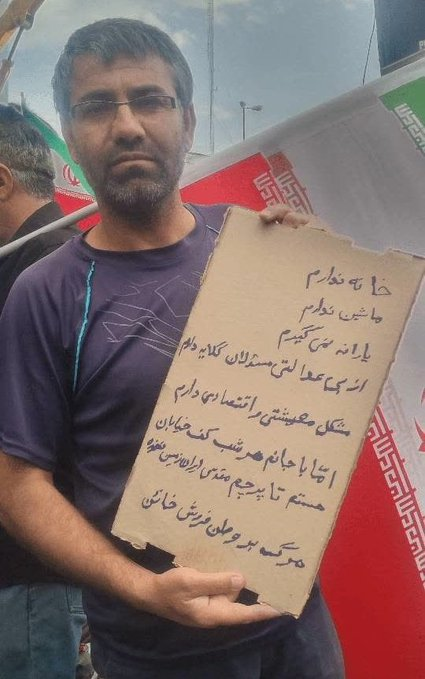 خانه ندارم
ماشین ندارم
یارانه نمی گیرم
از بی عدالتی مسئولان گلایه دارم
مشکل معیشتی و اقتصادی دارم
امّا با جانم هر شب کف خیابان
هستم تا پرچم مقدس ایران زمین نخوره
مرگ بر وطن فروش خائن